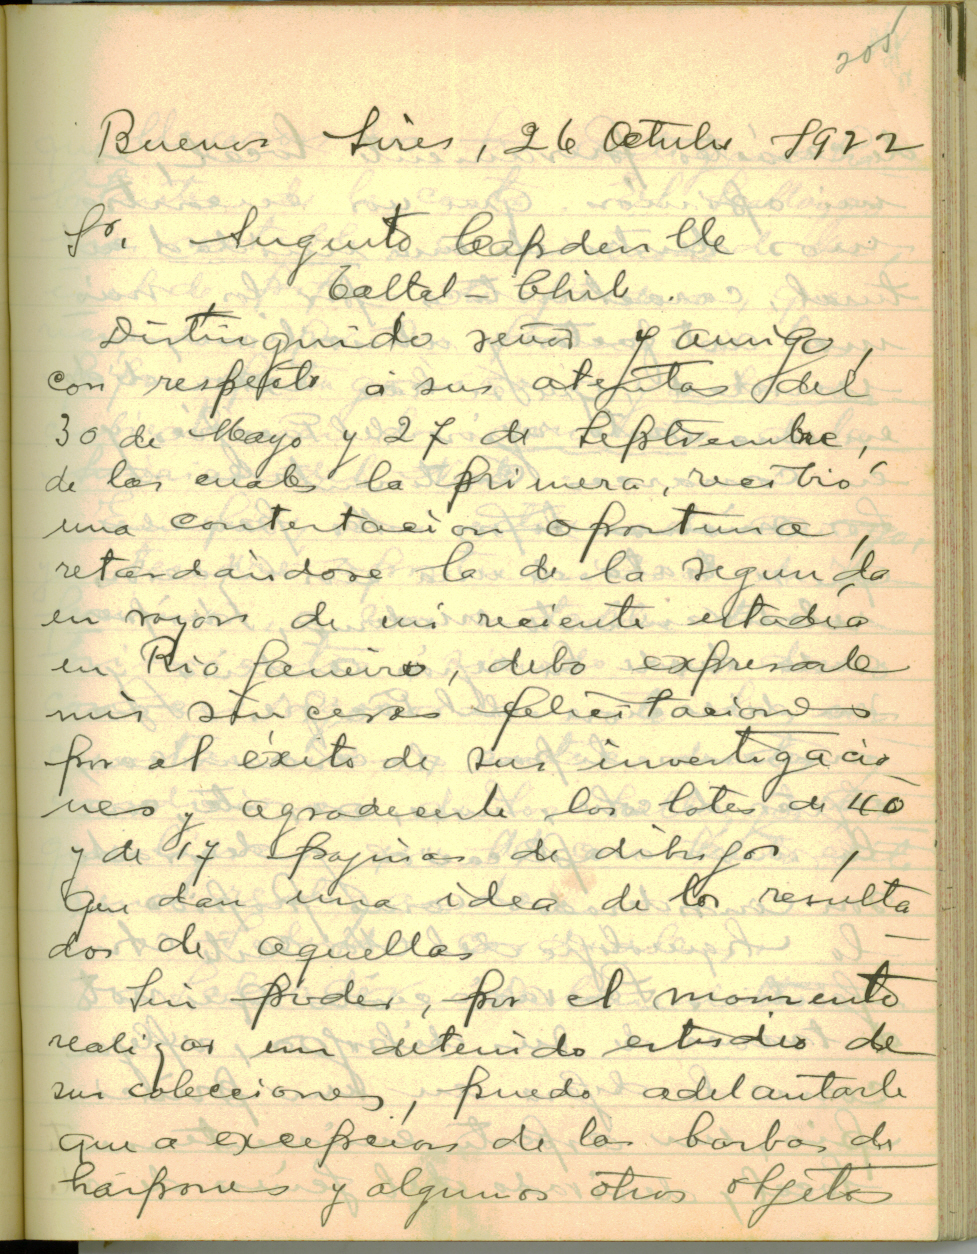 205
Buenos Aires, 26 Octubre 1922
Sr. Augusto Capdeville
Taltal - Chile.
Distinguido señor y amigo,
con respecto á sus atentas del
30 de Mayo y 27 de Septiembre,
de las cuales la primera, recibió
una contestación oportuna,
retardándose la de la segunda
en razon de mi reciente estadía
en Rio Janeiro, debo expresarle
mis sinceras felicitaciones
por el éxito de sus investigacio
nes y agradecerle los lotes de 40
y de 17 paginas de dibujos,
que dan una idea de los resulta
dos de aquellas
Sin poder, por el momento
realizar un detenido estudio de
sus colecciones, puedo adelantarle
que a excepción de las barbas de
harpones y algunos otros objetos